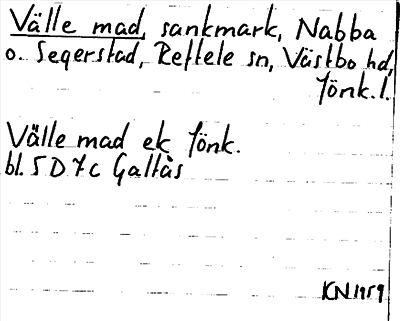 Välle mad, sankmark, Nabba
o. Segerstad, Reftele sn, Västbo hd,
Jönk.l.
Välle mad ek Jönk.
bl. 5 D 7 c Gallås
KN 1959